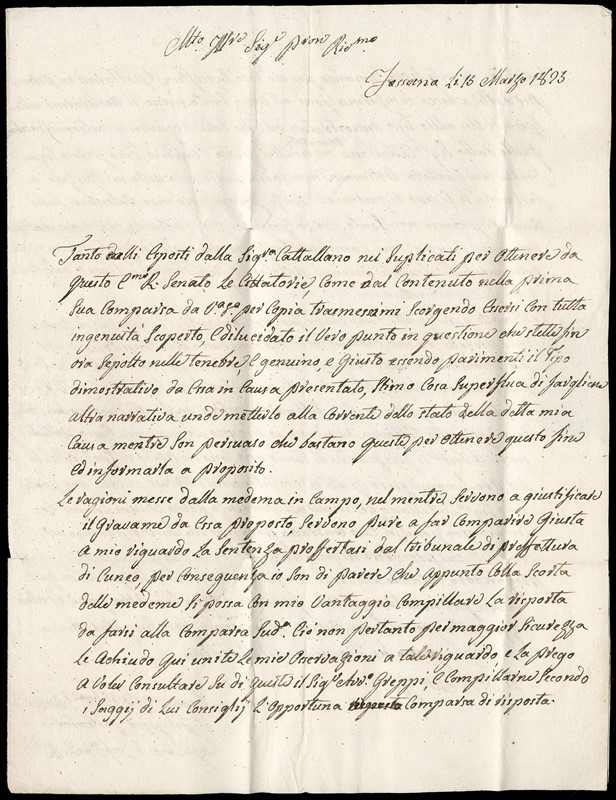 Mto. Illre Sigr pron Rivmo
Fossano Li 13 Marzo 1823
Tanto dalli Esposti dalla Sigra Cattallano nei Suplicati per Ottenere da
questo Emo R. Senato Le Cittatorie, Come dal Contenuto nella prima
Sua Comparsa da per Copia trasmessimi Scorgendo Essersi Con tutta
ingenuità Scoperto, E dilucidato il Vero punto in questione che stette fin
ora Sepolto nelle tenebre E genuino, e Giusto essendo parimenti il Tipo
dimostrativo da Essa in Causa presentato, Stimo Cosa Superflua di fargliene
altra narrativa unde metterlo alla Corrente dello stato della detta mia
Causa mentre Son persuaso che bastano Queste per Ottenere questo fine
Ed informarla a proposito.
Le ragioni messe dalla medema in Campo, nel mentre Servono a giustificare
il Gravame da Essa proposto, Servono pure a far Comparire Giusta
a mio riguardo La Sentenza proffertasi dal tribunale di preffettura
di Cuneo, per Conseguenza io Son di parere che appunto Colla Scorta
delle medeme Si possa Con mio Vantaggio Compillare La risposta
da farsi alla Comparsa Sudª. Ciò non pertanto per maggior Sicurezza
Le Achiudo Qui unite Le mie Osservazioni a tale riguardo, e La prego
a Voler Consultare Su di Queste il Sigr Avvo Greppi, E Compillarne Secondo
i Saggij di Lui Consiglij L'Opportuna Comparsa di risposta.